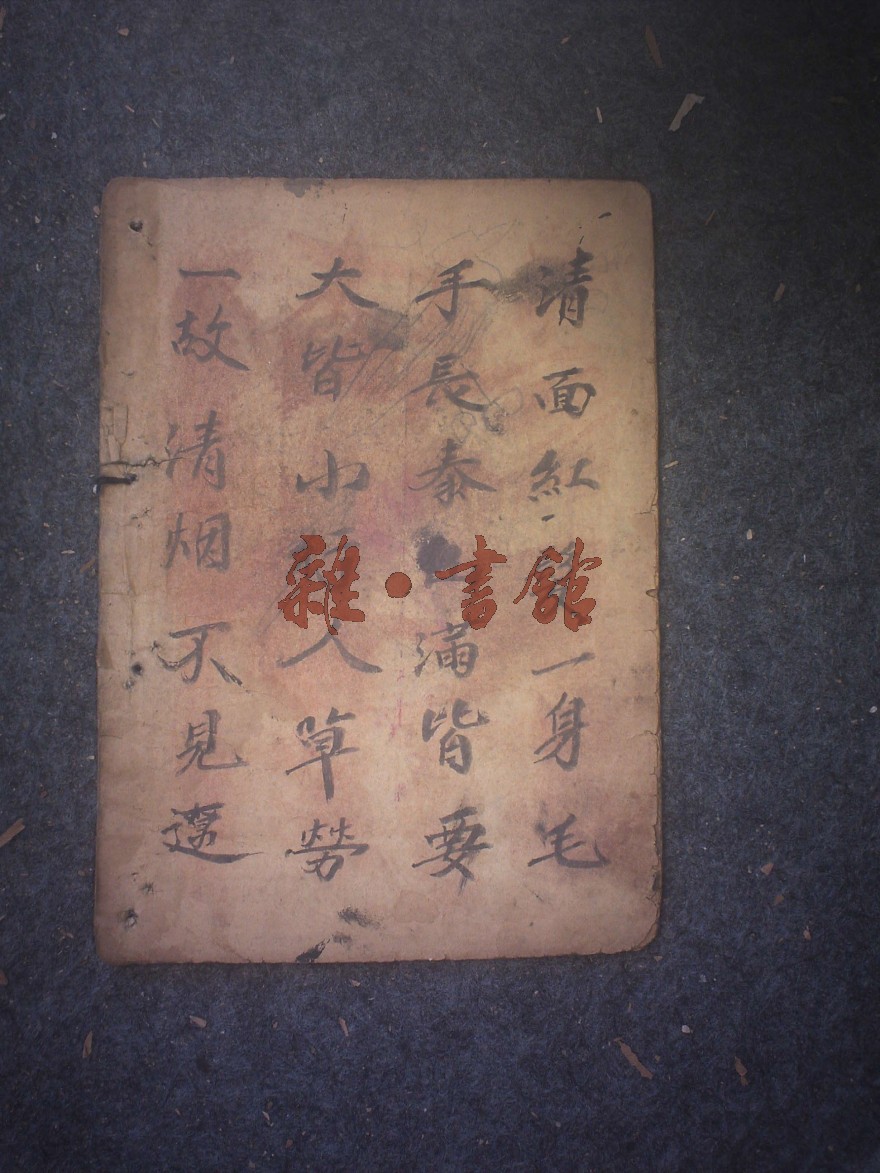 清面紅一身毛
手長泰滿皆要
大皆小人草勞
一故清烟不見邁
雜·書館